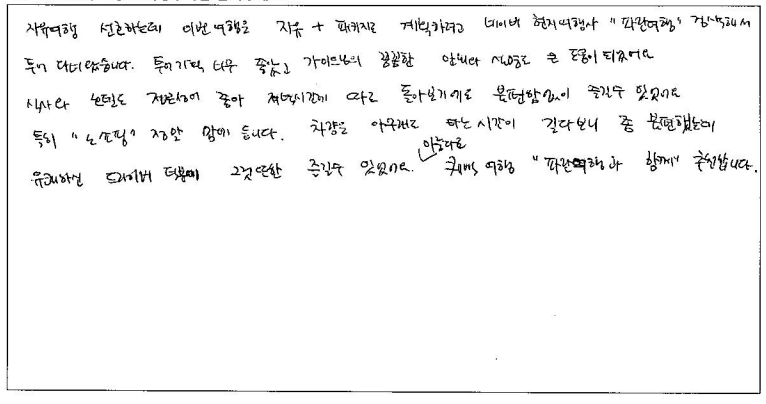 자유여행 선호하는데 이번여행은 자유 + 패키지로 계획하려고 네이버 현지여행사 "파란여행" 검색해서
투어 다녀왔습니다. 투어기획 너무 좋았고 가이드님의 꼼꼼한 안내와 설명으로 큰 도움이 되었어요
식사와 호텔도 접근성이 좋아 저녁시간에 따로 돌아보기에도 불편함없이 즐길수 있었어요
특히 "노쇼핑" 정말 맘에 듭니다. 차량을 아무래도 타는시간이 길다보니 좀 불편했는데
유쾌하신 드라이버 덕분에 그것또한 즐길수 있었어요. 아름다운 퀘벡 여행 "파란여행과 함께" 추천합니다.